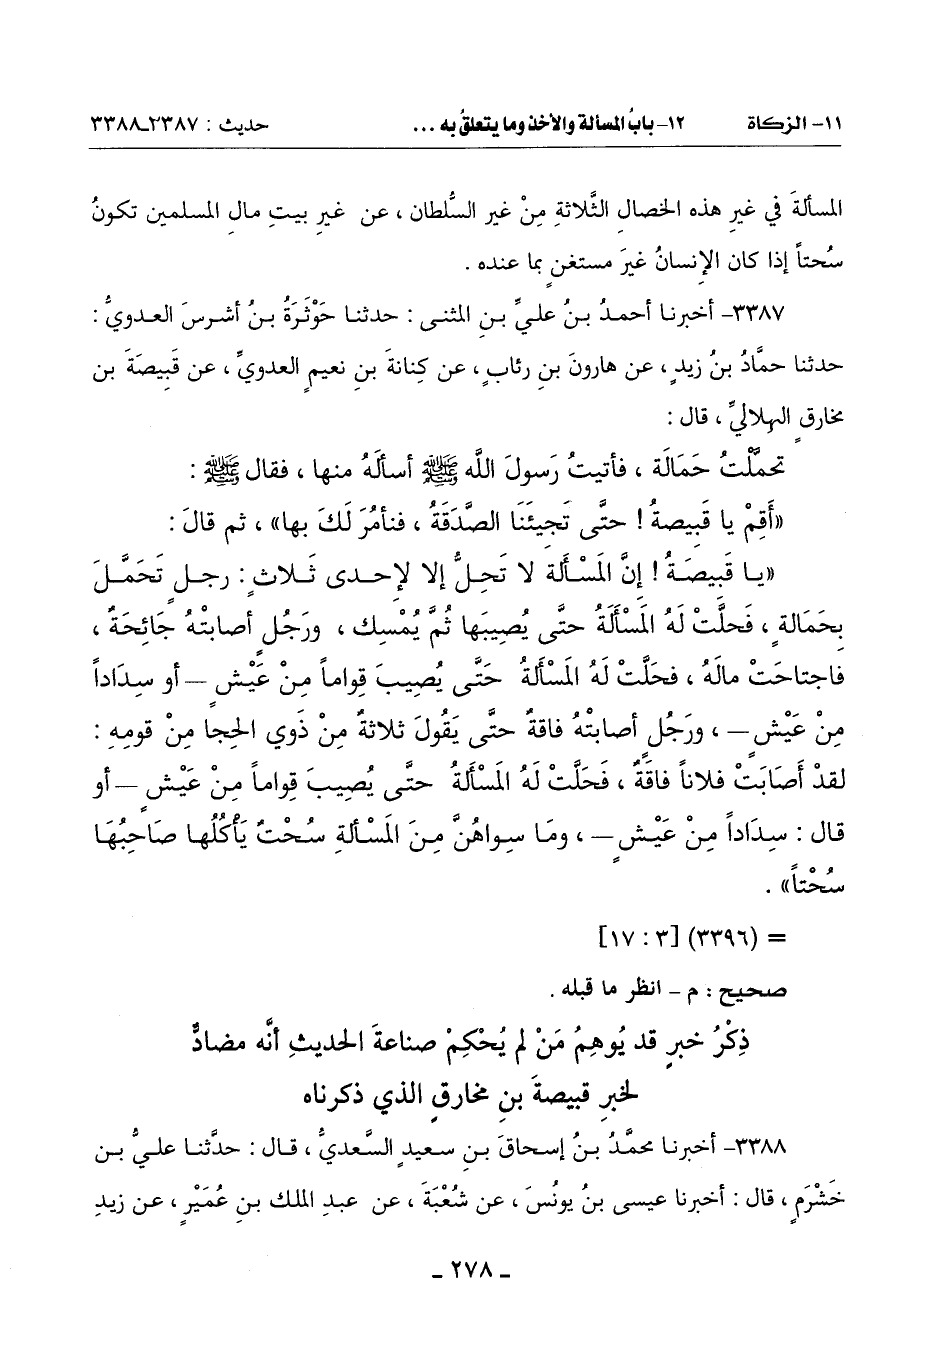 ١١- الزكاة ١٢- بابُ المسألة والأخذ وما يتعلقُ به ... حديث : ٣٣٨٧-٣٣٨٨
المسألةَ في غيرِ هذه الخصالِ الثَّلاثةِ مِنْ غير السُّلطان ، عن غيرِ بيتِ مالِ المسلمين تكونُ
سُحتاً إذا كان الإنسانُ غيرَ مستغنٍ بما عنده .
٣٣٨٧- أخبرنا أحمدُ بنُ عليِّ بنِ المثنى : حدثنا حَوْثَرَةُ بنُ أشرسَ العدويُّ :
حدثنا حمَّادُ بنُ زيدٍ ، عن هارونَ بنِ رئابٍ ، عن كِنانةَ بنِ نعيمٍ العدويِّ ، عن قَبِيصَةَ بن
مخارقٍ الهلاليِّ ، قال :
تحمَّلْتُ حَمَالَة ، فأتيتُ رَسولَ اللَّه ﷺ أسألَهُ منها ، فقال ﷺ :
«أَقِمْ يا قَبِيصةُ ! حتَّى تَجِيئَنَا الصَّدَقَةُ ، فنأمُرَ لَكَ بها» ، ثم قالَ :
«يا قَبِيصَةُ ! إنَّ المَسْألة لا تَحِلُّ إلا لإحدى ثَلاثٍ : رجلٍ تَحَمَّلَ
بِحَمَالةٍ ، فَحلَّتْ لَهُ المَسْأَلَةُ حتى يُصِيبَها ثُمَّ يُمْسِك ، ورَجُلٍ أصابتْهُ جَائِحَةٌ ،
فاجتاحَتْ مالَهُ ، فحلَّتْ لَهُ المَسْألةُ حَتَّى يُصِيبَ قِواماً مِنْ عَيْشٍ – أو سِدَاداً
مِنْ عَيْشٍ – ، ورَجُلٍ أصابتْهُ فاقةٌ حتَّى يَقُولَ ثلاثةٌ مِنْ ذَوي الحِجا مِنْ قومِهِ :
لقدْ أَصَابَتْ فلاناً فاقَةٌ ، فَحَلَّتْ لَهُ المَسْأَلةُ حتَّى يُصِيبَ قِواماً مِنْ عَيْشٍ – أو
قال : سِدَاداً مِنْ عَيْشٍ – ، ومَا سِواهُنَّ مِنَ المَسْألةِ سُحْتٌ يَأْكُلُها صَاحِبُهَا
سُحْتاً» .
= (٣٣٩٦) [٣ : ١٧]
صحيح : م – انظر ما قبله .
ذِكْرُ خبرٍ قد يُوهِمُ مَنْ لم يُحْكِمْ صناعةَ الحديثِ أنَّه مضادٌّ
لخبرِ قبيصةَ بنِ مخارقٍ الذي ذكرناه
٣٣٨٨- أخبرنا محمَّدُ بنُ إسحاقَ بنِ سعيدٍ السَّعديُّ ، قال : حدَّثنا عليُّ بن
خَشْرَمٍ ، قال : أخبرنا عيسى بنُ يونُسَ ، عن شُعْبَةَ ، عن عبدِ الملك بنِ عُمَيْرٍ ، عن زيدِ
– ٢٧٨ –